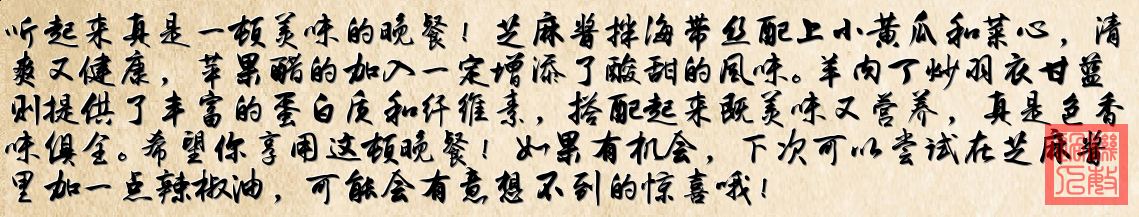 听起来真是一顿美味的晚餐！芝麻酱拌海带丝配上小黄瓜和菜心，清
爽又健康，苹果醋的加入一定增添了酸甜的风味。羊肉丁炒羽衣甘蓝
则提供了丰富的蛋白质和纤维素，搭配起来既美味又营养，真是色香
味俱全。希望你享用这顿晚餐！如果有机会，下次可以尝试在芝麻酱
里加一点辣椒油，可能会有意想不到的惊喜哦！